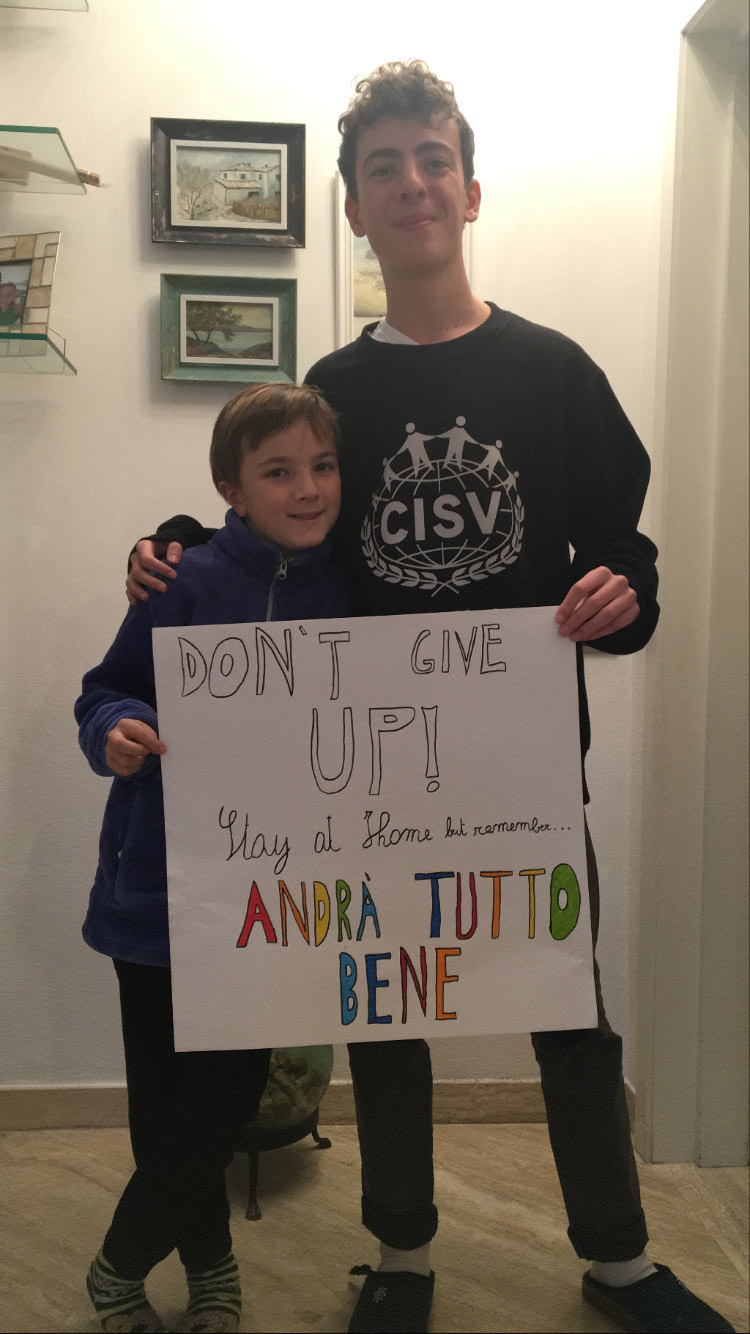 CISV
DON'T GIVE
UP!
Stay at home but remember...
ANDRÀ TUTTO
BENE